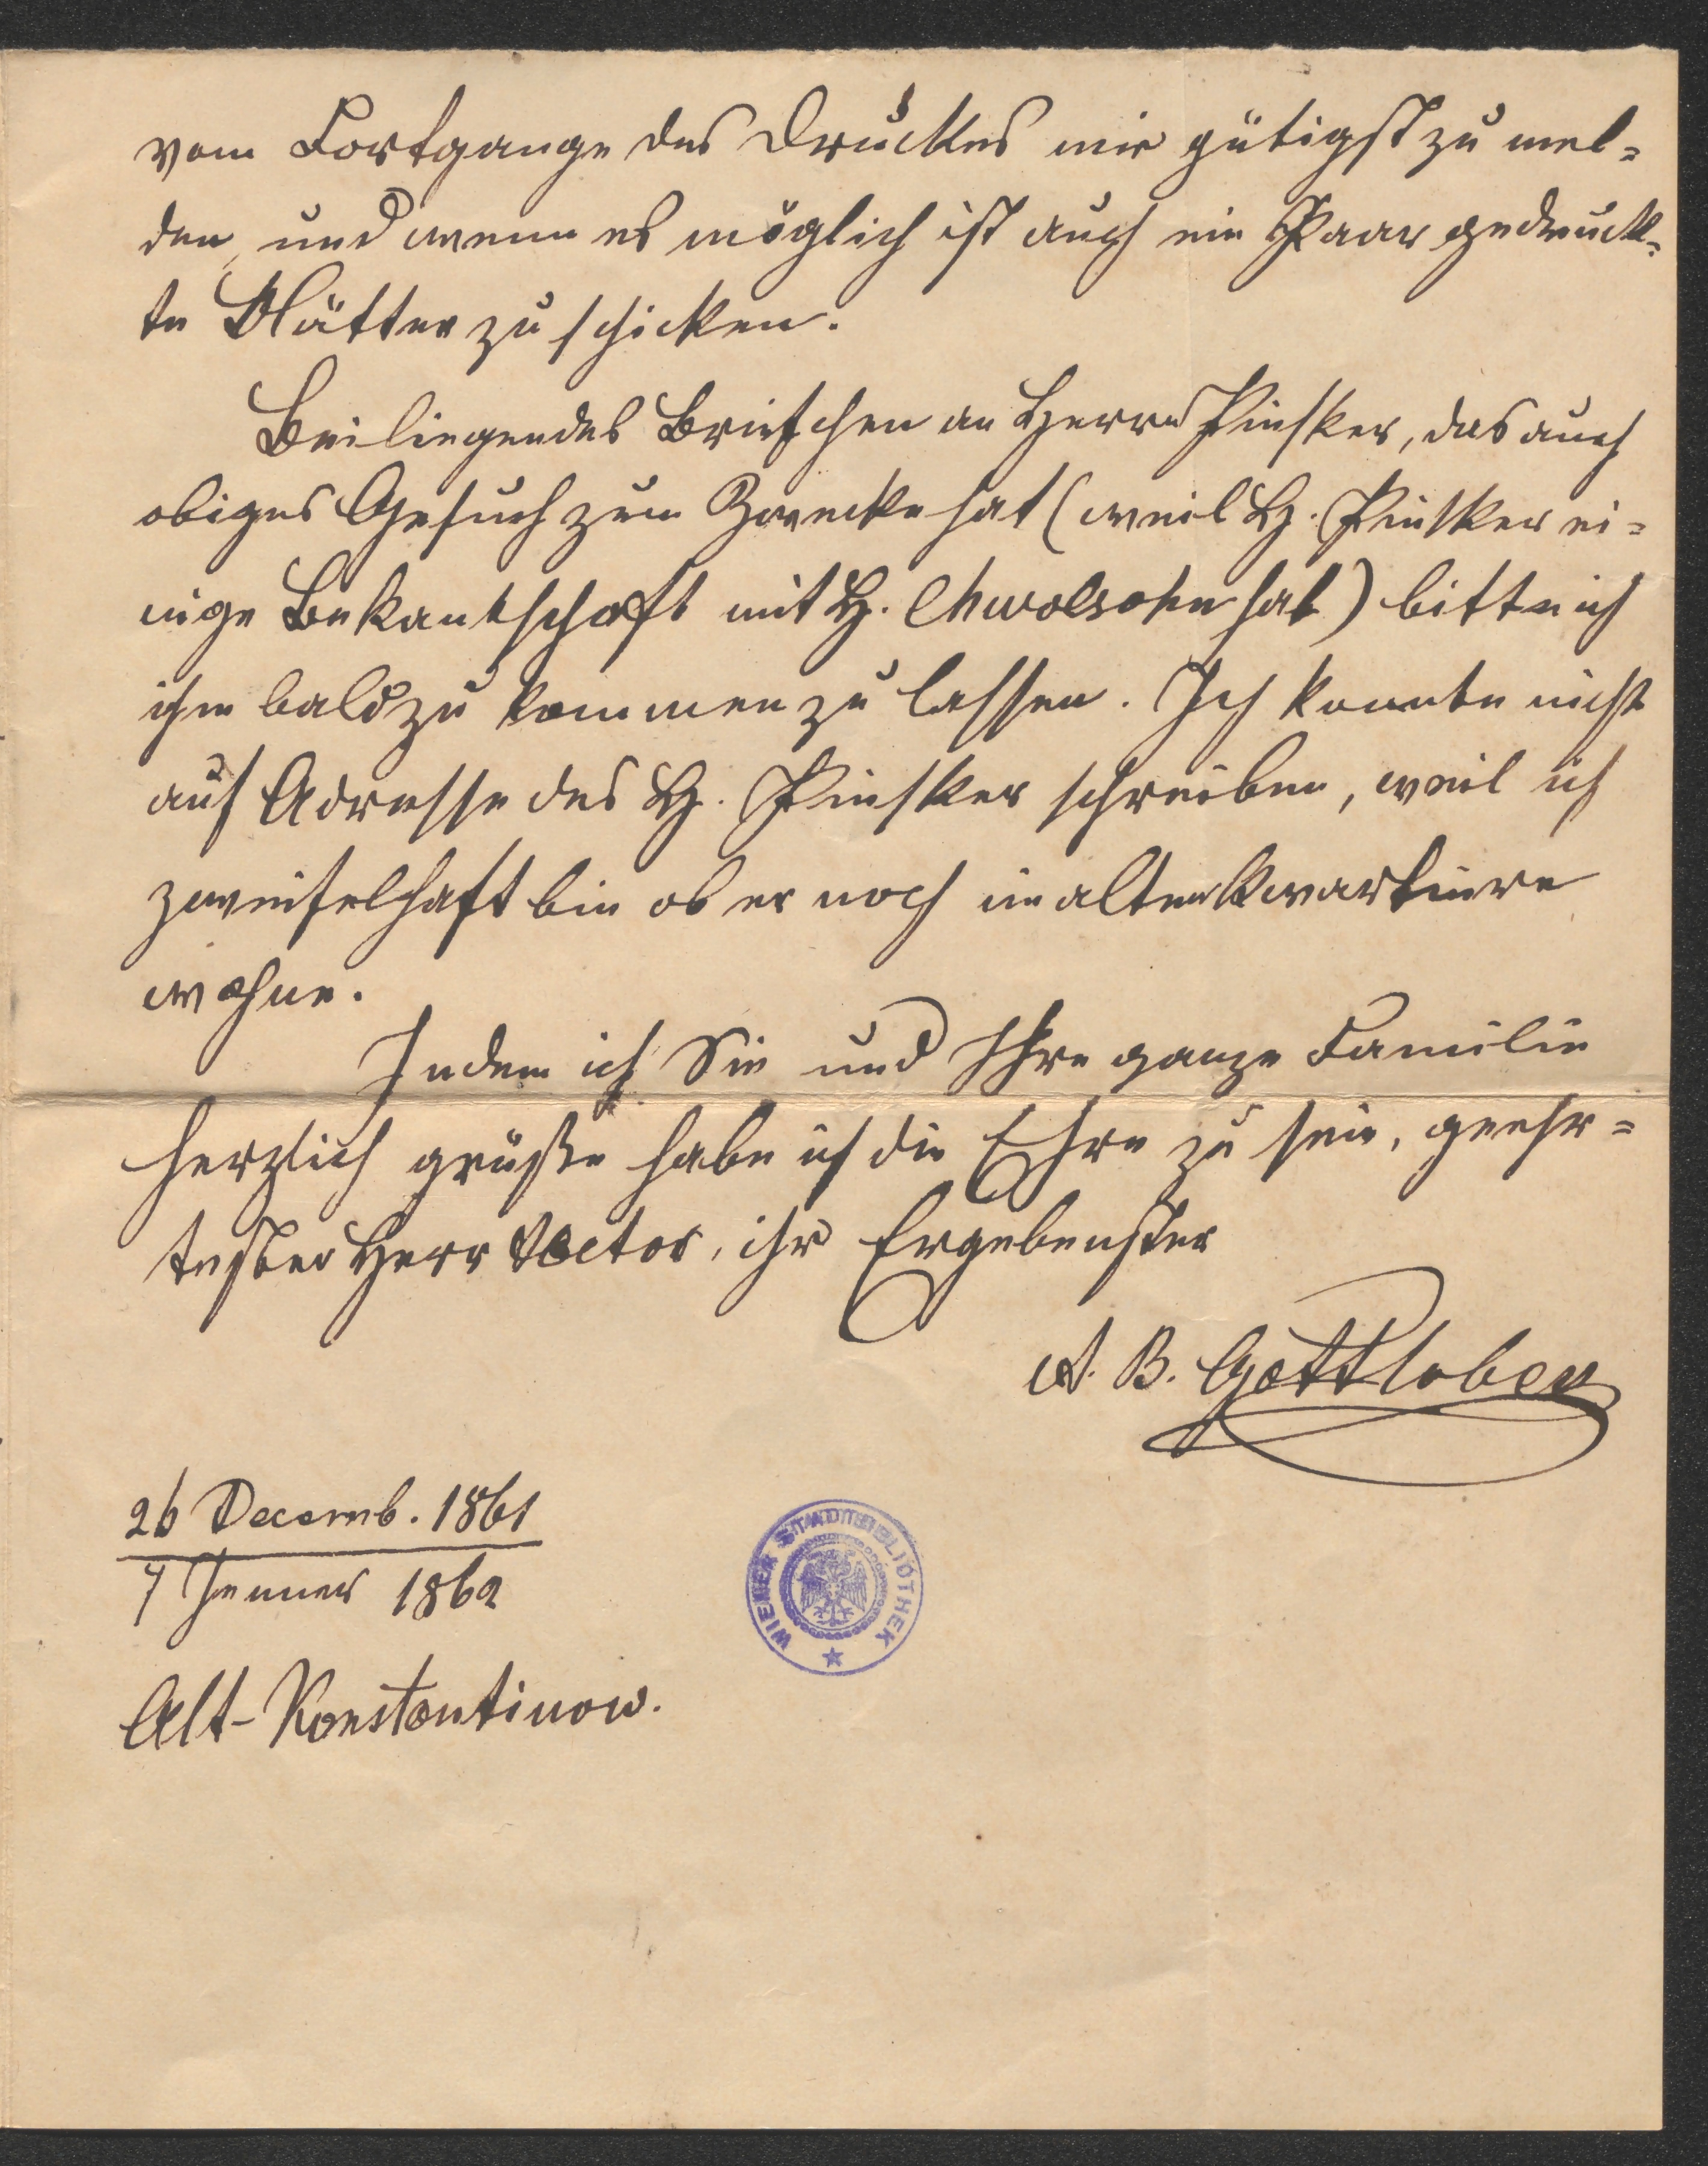 vom Fortgange des Druckes mir gütigst zu mel=
den, und wenn es möglich ist auch ein Paar gedruck=
te Blätter zu schicken.
Beiliegendes Briefchen an Herrn Pinsker, das auch
obiges Gesuch zum Zwecke hat (weil H. Pinsker ei=
nige Bekantschaft mit H. Chwolsohn hat) bitte ich
ihm bald zu kommen zu lassen. Ich konnte nicht
auf Adresse des H. Pinsker schreiben, weil ich
zweifelhaft bin ob er noch im alten Kwartiere
wohne.
Indem ich Sie und Ihre ganze Familie
herzlich grüße habe ich die Ehre zu sein, geehr=
tester Herr Doctor, ihr Ergebenster
A. B. Gottlober
26 Decemb. 1861
7 Jenner 1862
WIENER STADTBIBLIOTHEK
Alt-Konstantinow.